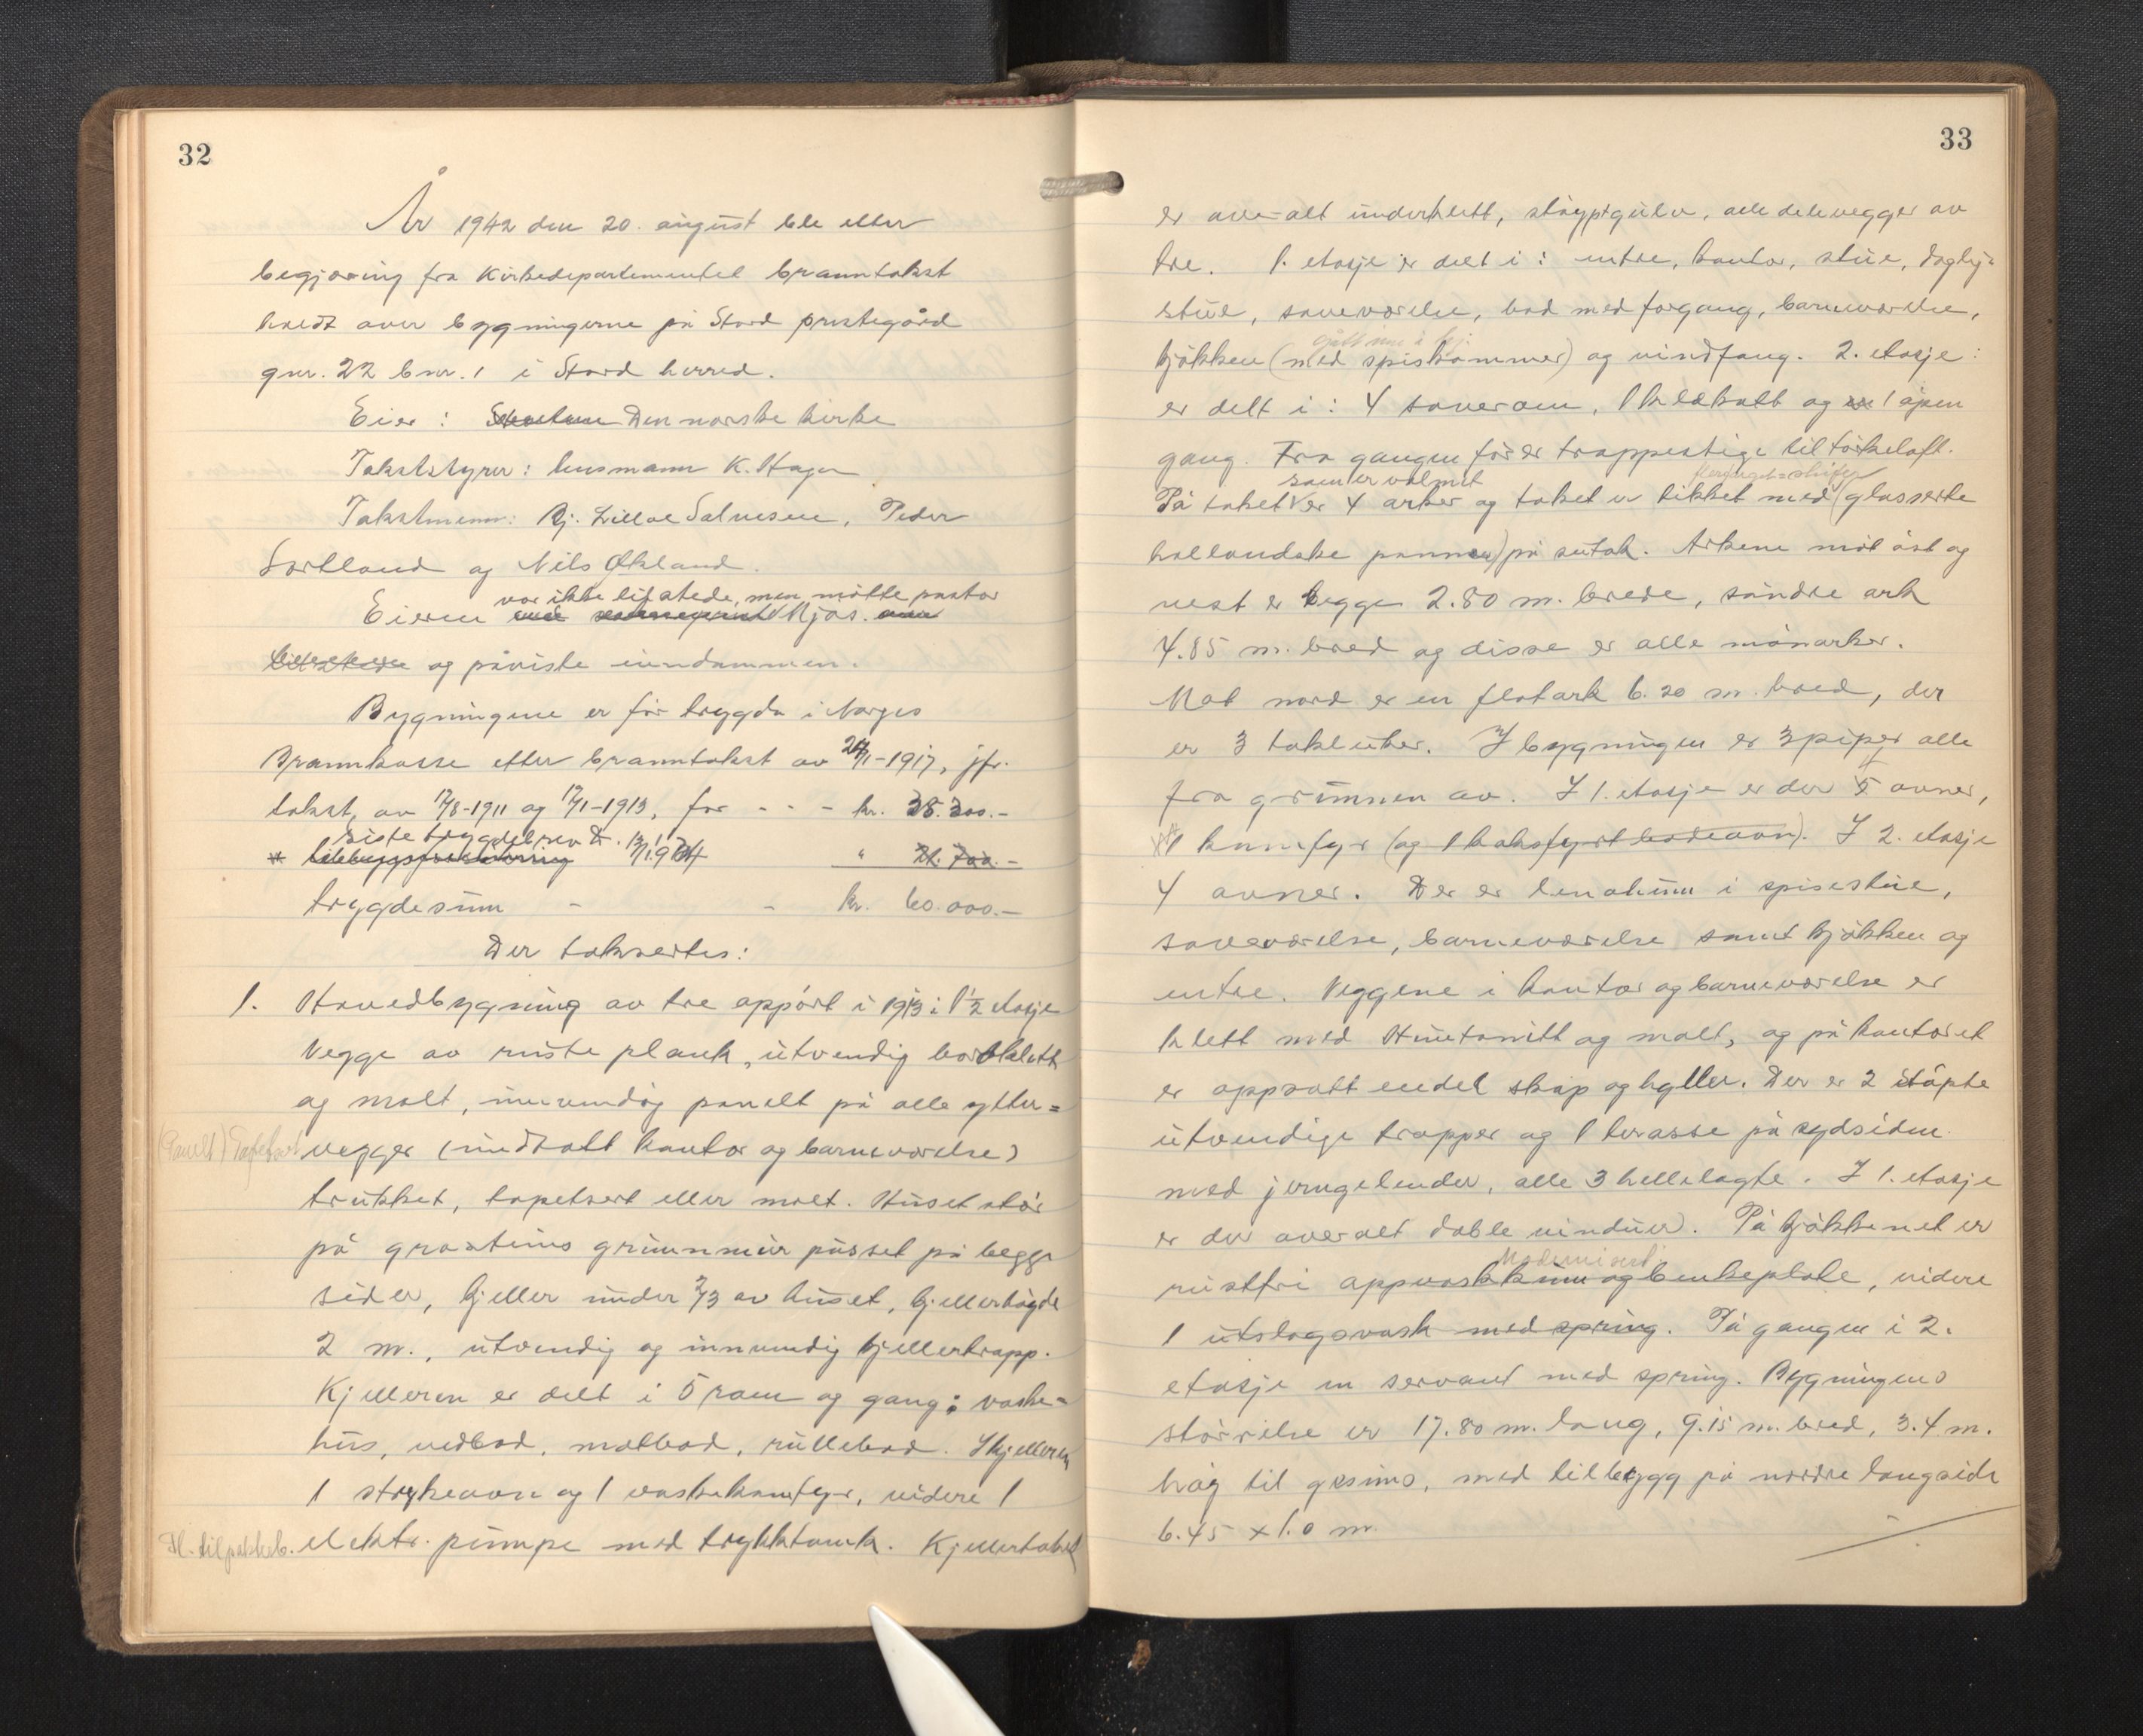 32
År 1942 den 20. august ble etter
begjæring fra Kirkedepartementet branntakst
holdt over bygningene på Stord prestegård
gnr. 22 bnr. 1 i Stord herred.
Eier: Den norske kirke
Takststyrer: lensmann K. Hagen
Takstmenn: Bj. Lilloe Salvesen, Peder
Sortland og Nils Økland.
var ikke tilstede, men møtte pastor
Eieren Njøs.
og påviste eiendommen.
Bygningene er før trygda i Norges
Brannkasse etter branntakst av 24/1-1917, jfr.
takst av 17/8-1911 og 17/1-1913, for - - - kr. 38.300.-
siste trygdebrev d. 13/1 1934
tilleggsforsikring " 21.700.-
trygdesum - - kr. 60.000.-
Der takseertes:
1. Hovedbygning av tre oppført i 1913 i 1½ etasje
Vegge av reiste plank, utvendig bordklett
og malt, innvendig panelt på alle ytter=
(Panelt) Tapetsert vegger (undtatt kontor og barneværelse)
trukket, tapetsert eller malt. Huset står
på gråsteins grunnmur pusset på begge
sider, kjeller under 2/3 av huset, kjellerhøgde
2 m., utvendig og innvendig kjellertrapp.
Kjelleren er delt i 5 rom og gang: vaske-
hus, vedbod, matbod, rullebod. I kjelleren
1 strykeovn og 1 vaskekomfyr, videre 1
elektr. pumpe med trykktank. Kjellertaket
33
er over-alt underklett, støyptgulv, alle delevegger av
tre. 1. etasje er delt i: entre, kontor, stue, daglig-
stue, soveværelse, bad med forgang, barneværelse,
kjøkken (med spiskammer) og vindfang. 2. etasje:
er delt i: 4 soverom, 1 klekott og 1 åpen
gang. Fra gangen fører trappestige til tørkeloft.
som er valmet
På taket er 4 arker og taket er tekket med (glasserte
hollandske panner) på sutak. Arkene mot øst og
vest er begge 2.80 m. brede, søndre ark
4.85 m. bred og disse er alle mønarker.
Mot nord er en flatark 6.20 m. bred, der
er 3 takluker. I bygningen er 3 piper alle
fra grunnen av. I 1. etasje er der 5 ovner,
1 komfyr (og 1 koksfyrt badeovn). I 2. etasje
4 ovner. Der er lenoleum i spisestue,
soveværelse, barneværelse samt kjøkken og
entre. Veggene i kontor og barneværelse er
klett med Huntonitt og malt, og på kontoret
er oppsatt endel skap og hyller. Der er 2 støpte
utvendige trapper og 1 terasse på sydsiden
med jerngelender, alle 3 hellelagte. I 1. etasje
er der overalt doble vinduer. På kjøkkenet er
Modernisert
rustfri oppvaskkum og benkeplate, videre
1 utslagsvask med spring. På gangen i 2.
etasje en servant med spring. Bygningens
størrelse er 17.80 m. lang, 9.15 m. bred, 3.4 m.
høg til gesims, med tilbygg på nordre langside
6.45 x 1.0 m.